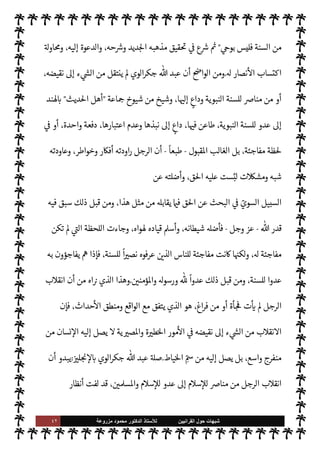 من السنة فليس بوحي" ثم شرع في تحقيق مذهبه الجديد وشرحه، والدعوة إليه، ومحاولة
اكتساب الأنصار له.ومن الواضح أن عبد الله جكرالوي لم ينتقل من الشيء إلى نقيضه،
أو من مناصر للسنة النبوية وداعٍ إليها، وشيخ من شيوخ جماعة "أهل الحديث" بالهند
إلى عدو للسنة النبوية، طاعن فيها، داعٍ إلى نبذها وعدم اعتبارها، دفعة واحدة، أو في
لحظة مفاجئة، بل الغالب المقبول - طبعاً - أن الرجل راودته أفكار وخواطر، وعاودته
شبه ومشكلات لبَّست عليه الحق، وأضلته عن
السبيل السويّ في البحث عن الحق فيما يقابله من مثل هذا، ومن قبل ذلك سبق فيه
قدر الله - عز وجل - فأضله شيطانه، وأسلم قياده لهواه، وجاءت اللحظة التي لم تكن
مفاجئة له، ولكنها كانت مفاجئة للناس الذين عرفوه نصيراً للسنة، فإذا هم يفاجؤون به
عدوا للسنة، ومن قبل ذلك عدواً لله ورسوله والمؤمنين.وهذا الذي نراه من أن انقلاب
الرجل لم يأت فجأة أو من فراغ، هو الذي يتفق مع الواقع ومنطق الأحداث، فإن
الانقلاب من الشيء إلى نقيضه في الأمور الخطيرة والمصيرية لا يصل إليه الإنسان من
منفرج واسع، بل يصل إليه من سَمِّ الخياط.صلة عبد الله جكرالوي بالإنجليز:يبدو أن
انقلاب الرجل من مناصر للإسلام إلى عدو للإسلام والمسلمين، قد لفت أنظار
٤٢ شبهات حول القرآنيين للأستاذ الدكتور محمود مزروعة